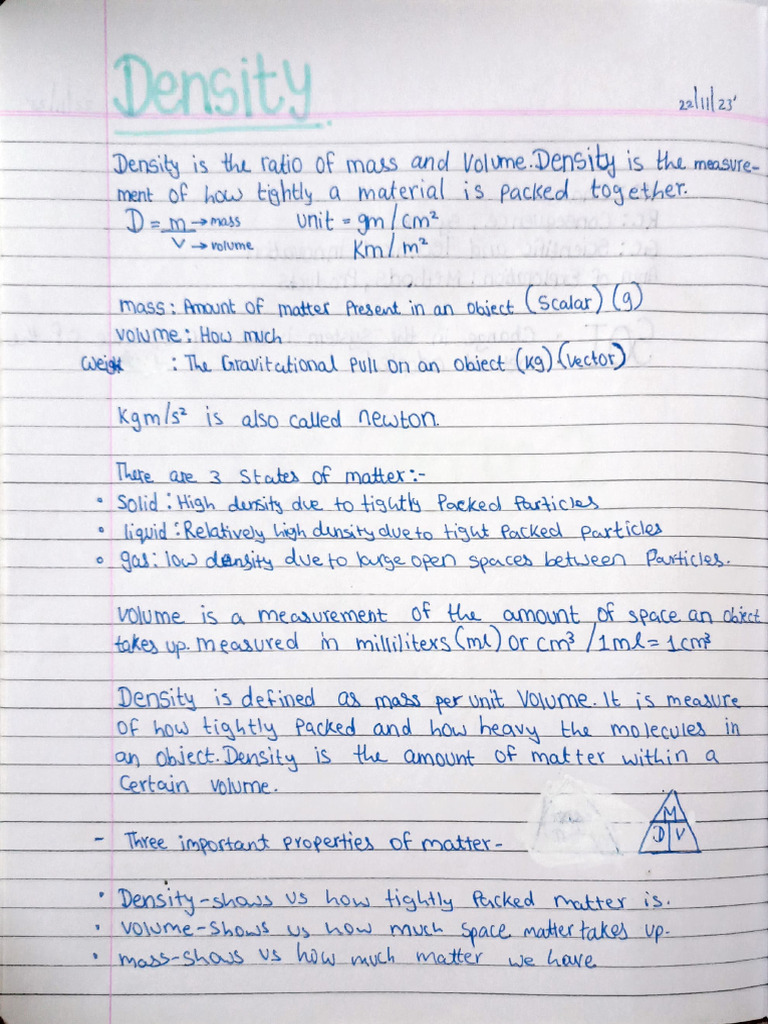 Density
22/11/23'
Density is the ratio of mass and volume. Density is the measure-
ment of how tightly a material is packed together.
D = m → mass unit = gm/cm²
V → volume Km/m²
mass: Amount of matter Present in an object (Scalar) (g)
volume: How much
weight : The Gravitational Pull on an object (kg) (vector)
Kgm/s² is also called newton.
There are 3 states of matter:-
• Solid: High density due to tightly Packed Particles
• liquid: Relatively high density due to tight Packed particles
• gas: low density due to large open spaces between Particles.
volume is a measurement of the amount of space an object
takes up. measured in milliliters (ml) or cm³ / 1ml = 1cm³
Density is defined as mass per unit volume. It is measure
of how tightly Packed and how heavy the molecules in
an object. Density is the amount of matter within a
Certain volume.
M
D V
- Three important properties of matter-
• Density-shows us how tightly Packed matter is.
• volume-shows us how much space matter takes up.
• mass-shows us how much matter we have